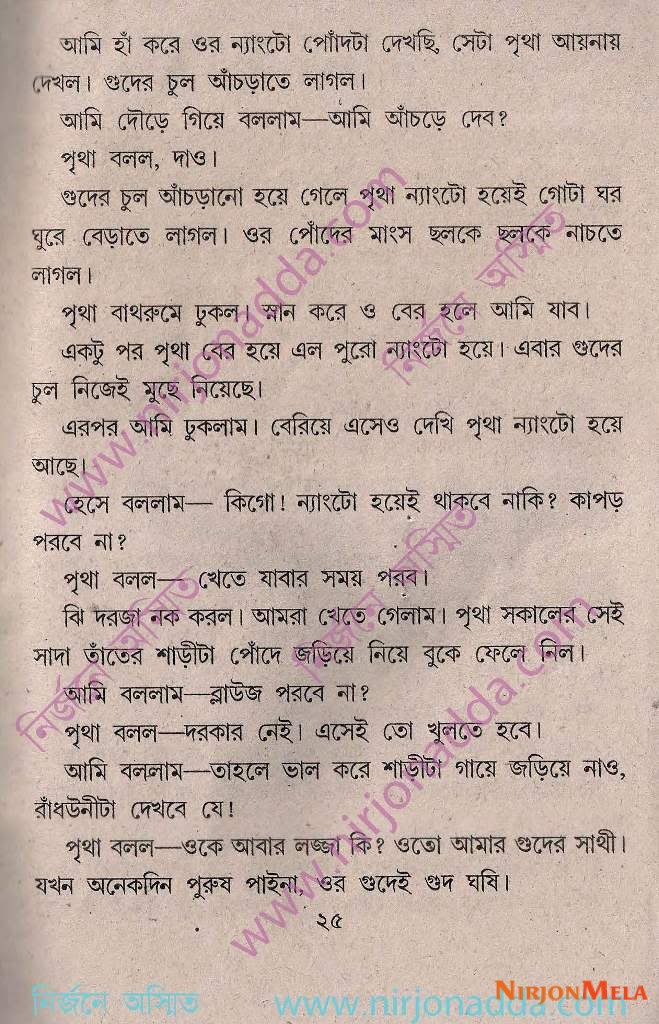 আমি হাঁ করে ওর ন্যাংটো পোঁদটা দেখছি, সেটা পৃথা আয়নায়
দেখল। গুদের চুল আঁচড়াতে লাগল।
আমি দৌড়ে গিয়ে বললাম—আমি আঁচড়ে দেব?
পৃথা বলল, দাও।
গুদের চুল আঁচড়ানো হয়ে গেলে পৃথা ন্যাংটো হয়েই গোটা ঘর
ঘুরে বেড়াতে লাগল। ওর পোঁদের মাংস ছলকে ছলকে নাচতে
লাগল।
পৃথা বাথরুমে ঢুকল। স্নান করে ও বের হলে আমি যাব।
একটু পর পৃথা বের হয়ে এল পুরো ন্যাংটো হয়ে। এবার গুদের
চুল নিজেই মুছে নিয়েছে।
এরপর আমি ঢুকলাম। বেরিয়ে এসেও দেখি পৃথা ন্যাংটো হয়ে
আছে।
হেসে বললাম— কিগো! ন্যাংটো হয়েই থাকবে নাকি? কাপড়
পরবে না?
পৃথা বলল— খেতে যাবার সময় পরব।
ঝি দরজা নক করল। আমরা খেতে গেলাম। পৃথা সকালের সেই
সাদা তাঁতের শাড়ীটা পোঁদে জড়িয়ে নিয়ে বুকে ফেলে নিল।
আমি বললাম—ব্লাউজ পরবে না?
পৃথা বলল—দরকার নেই। এসেই তো খুলতে হবে।
আমি বললাম—তাহলে ভাল করে শাড়ীটা গায়ে জড়িয়ে নাও,
রাঁধউনীটা দেখবে যে!
পৃথা বলল—ওকে আবার লজ্জা কি? ওতো আমার গুদের সাথী।
যখন অনেকদিন পুরুষ পাইনা, ওর গুদেই গুদ ঘষি।
২৫
www.nirjonadda.com
নির্জনে অস্মিত
নির্জনে অস্মিত
নির্জনে অস্মিত
www.nirjonadda.com
নির্জনে অস্মিত
www.nirjonadda.com
NIRJONMELA